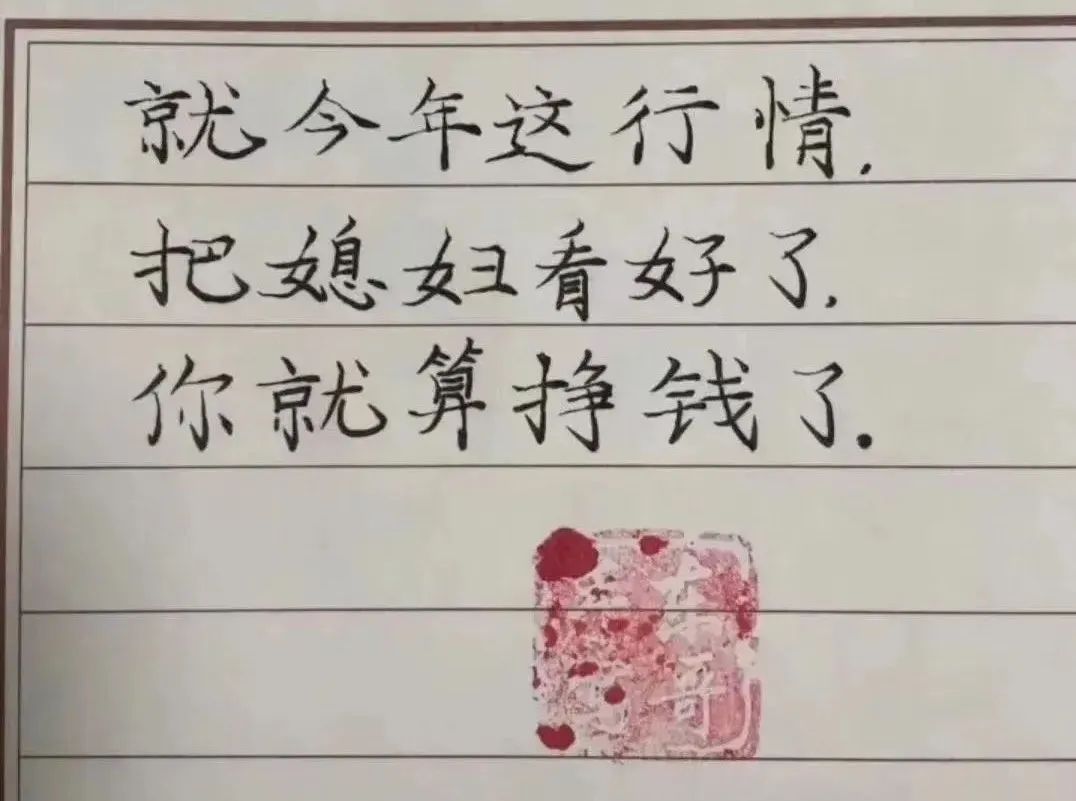 就今年这行情，
把媳妇看好了，
你就算挣钱了。